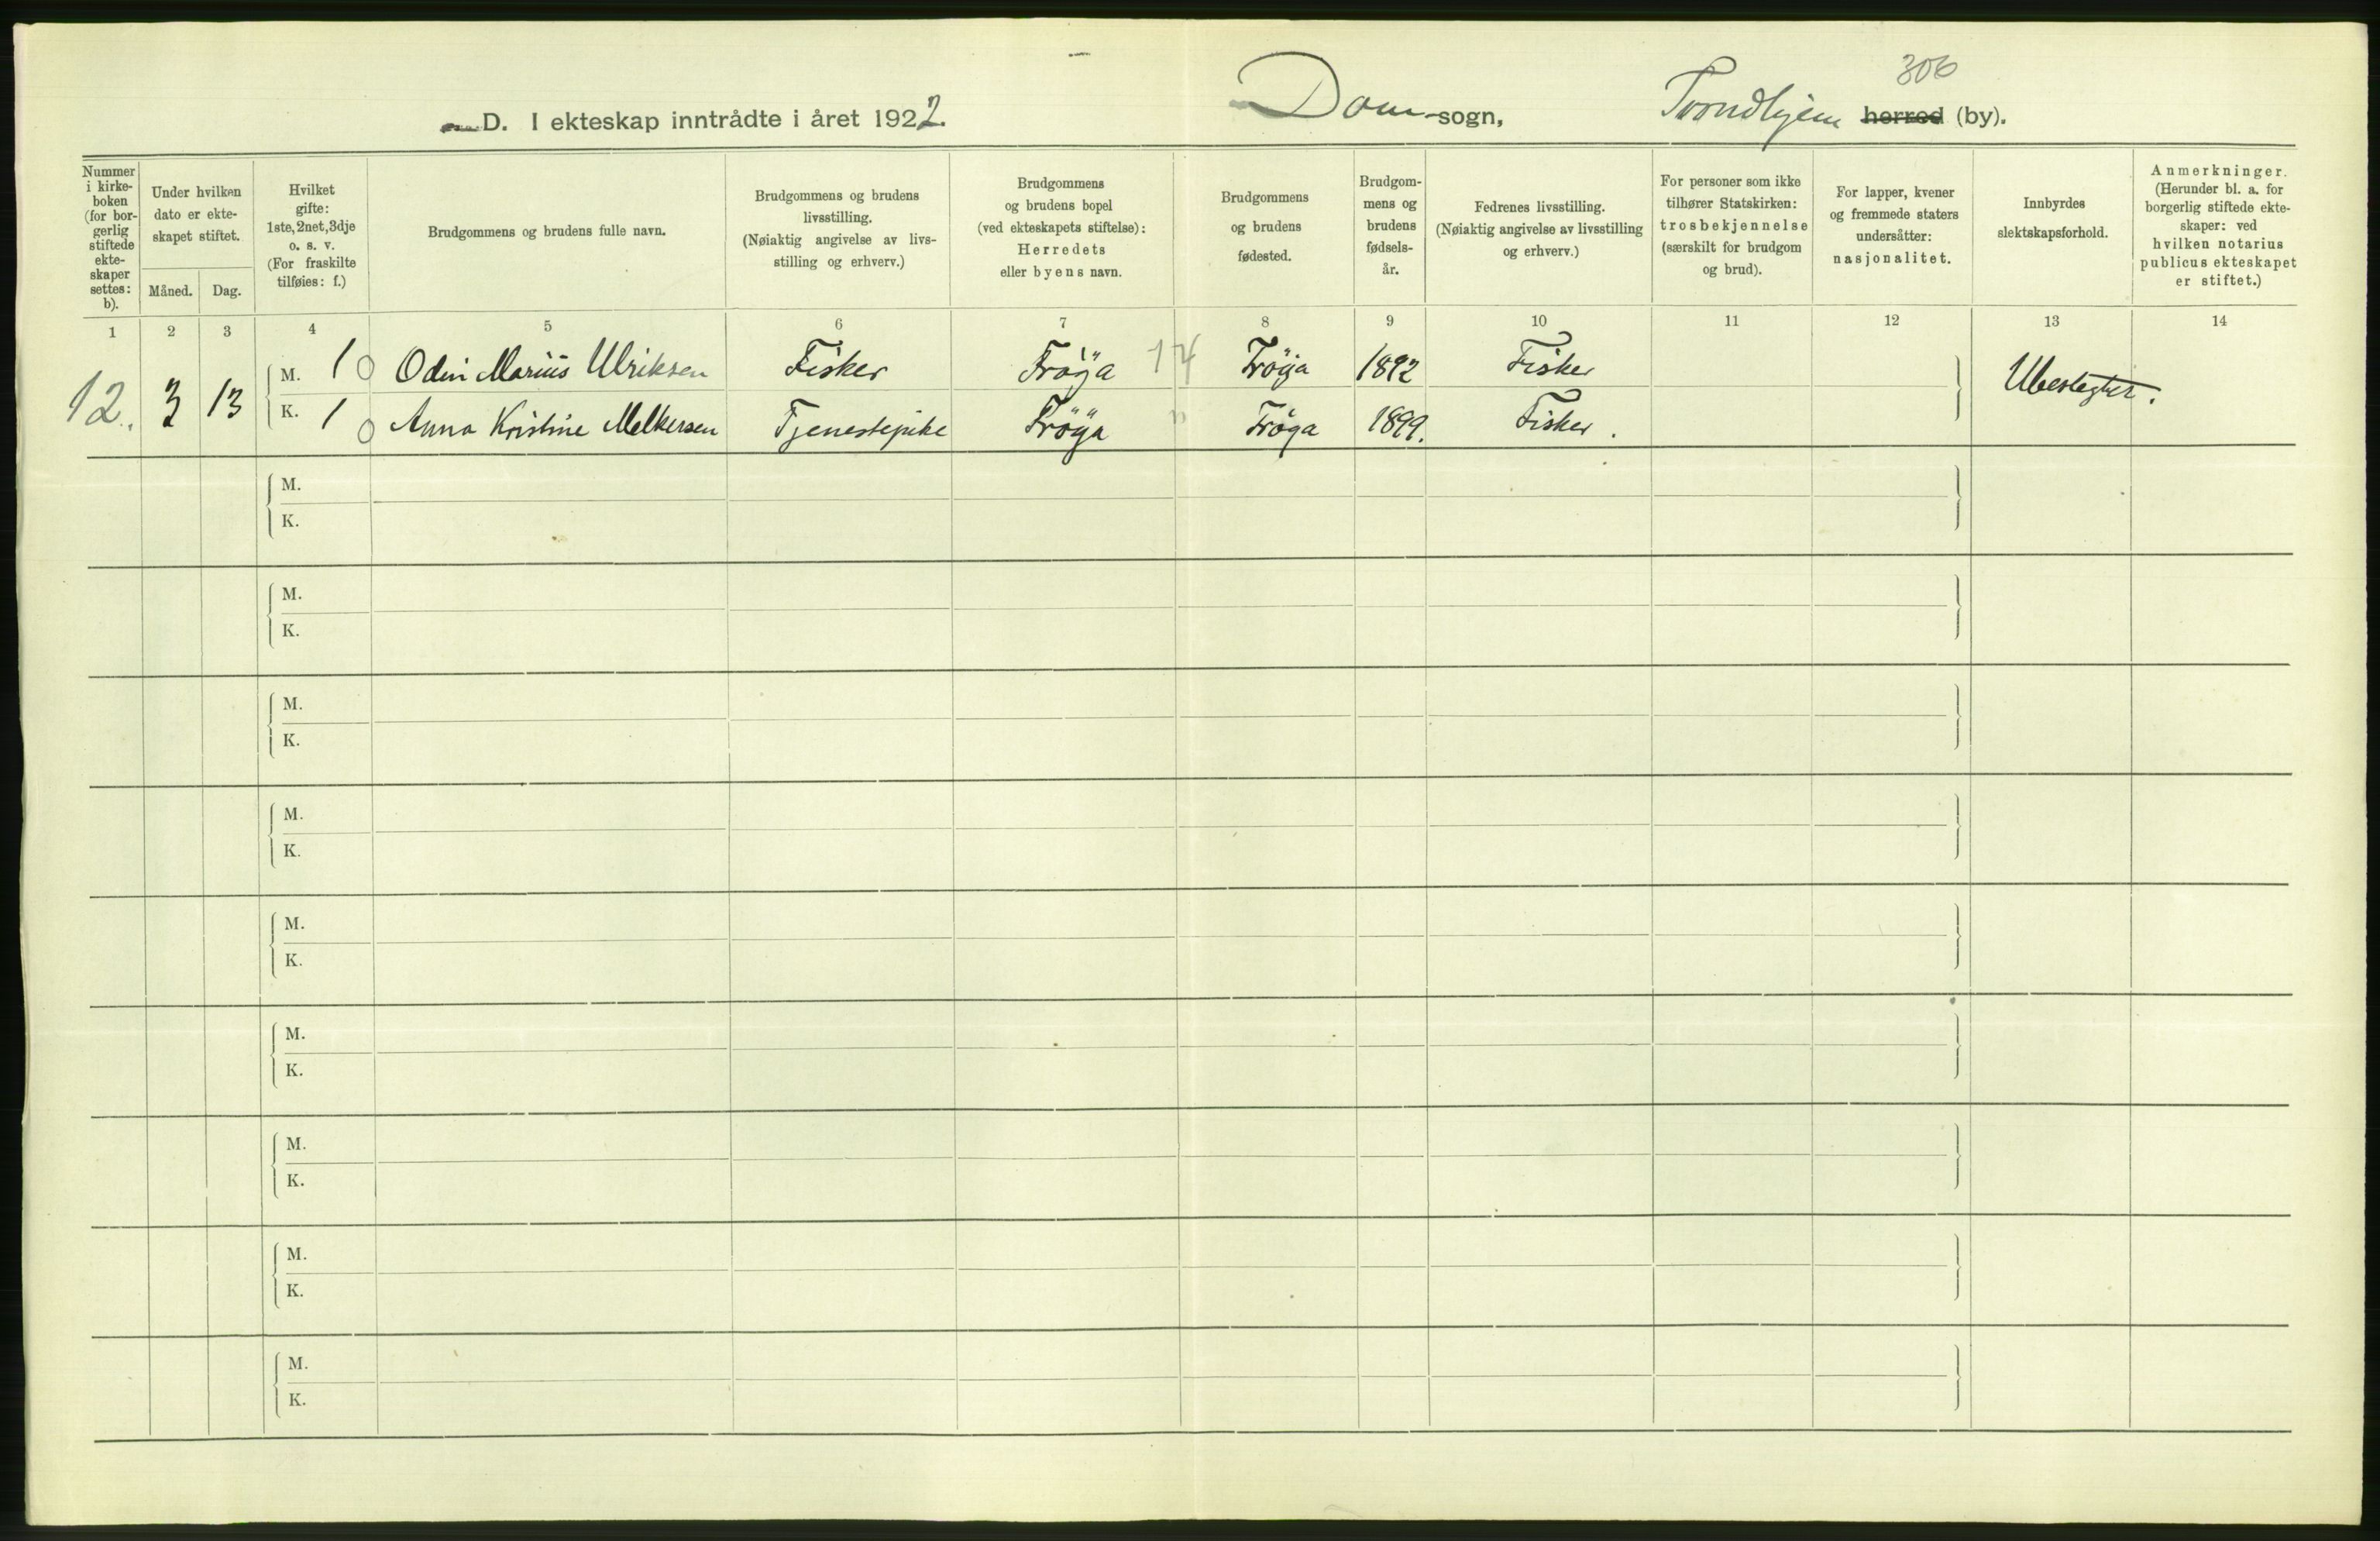 306
D. I ekteskap inntrådte i året 1922. Dom-sogn, Trondhjem herred (by).
Nummer i kirke-boken (for bor-gerlig stiftede ekte-skaper settes: b).
Under hvilken dato er ekte-skapet stiftet.
Måned. Dag.
Hvilket gifte: 1ste, 2net, 3dje o. s. v. (For fraskilte tilføies: f.)
Brudgommens og brudens fulle navn.
Brudgommens og brudens livsstilling. (Nøiaktig angivelse av livs-stilling og erhverv.)
Brudgommens og brudens bopel (ved ekteskapets stiftelse): Herredets eller byens navn.
Brudgommens og brudens fødested.
Brudgom-mens og brudens fødsels-år.
Fedrenes livsstilling. (Nøiaktig angivelse av livsstilling og erhverv.)
For personer som ikke tilhører Statskirken: trosbekjennelse (særskilt for brudgom og brud).
For lapper, kvener og fremmede staters undersåtter: nasjonalitet.
Innbyrdes slektskapsforhold.
Anmerkninger. (Herunder bl. a. for borgerlig stiftede ekte-skaper: ved hvilken notarius publicus ekteskapet er stiftet.)
1 2 3 4 5 6 7 8 9 10 11 12 13 14
12. 3 13
M. 1 0 Odin Marius Ulriksen Fisker Fröya 14 Fröya 1892 Fisker Ubeslegtet.
K. 1 0 Anna Kristine Melkersen Tjenestepike Fröya " Fröya 1899. Fisker.
M.
K.
M.
K.
M.
K.
M.
K.
M.
K.
M.
K.
M.
K.
M.
K.
M.
K.